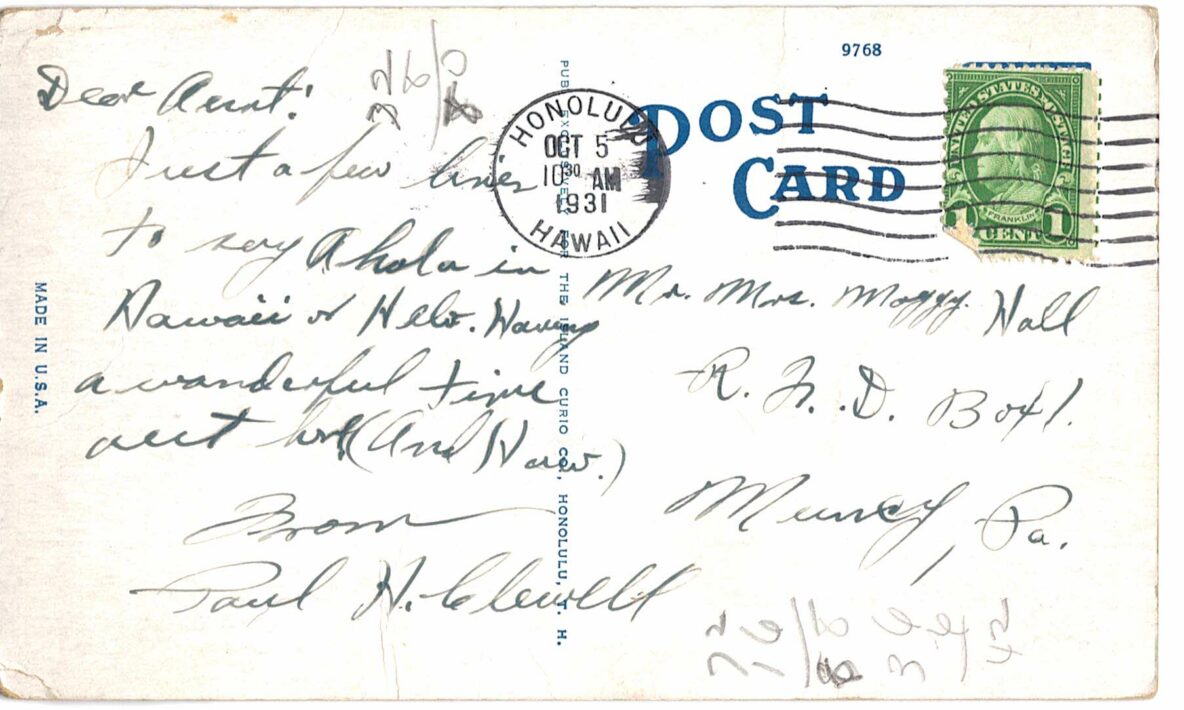 9768
POST
CARD
HONOLULU
OCT 5
10 30 AM
1931
HAWAII
UNITED STATES POSTAGE
FRANKLIN
1 CENT
Dear Aunt:
Just a few lines
to say Ahola in
Hawaii or Helo. Having
a wanderful time
out here (And How.)
From
Paul H. Clewell
Mr. Mrs. Moggy. Hall
R. F. D. Box 1.
Muncy, Pa.
MADE IN U.S.A.
PUB. EXCLUSIVELY FOR THE ISLAND CURIO CO., HONOLULU, T. H.